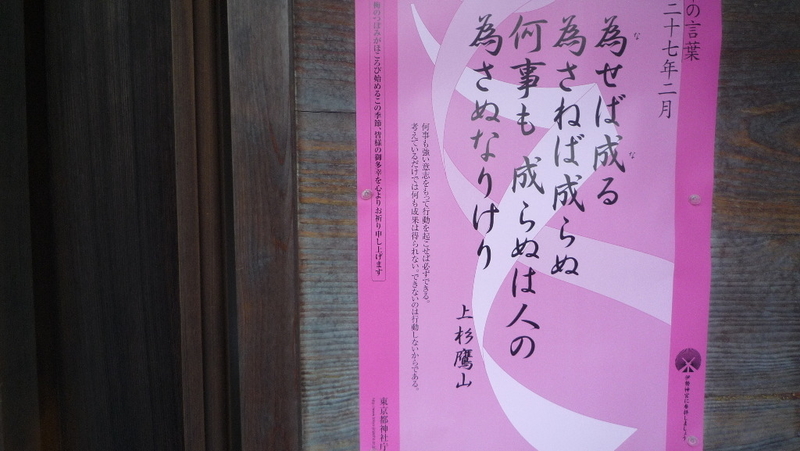 の言葉
二十七年二月
為せば成る
な
な
為さねば成らぬ
何事も 成らぬは人の
為さぬなりけり
上杉鷹山
何事も強い意志をもって行動を起こせば必ずできる。
考えているだけでは何も成果は得られない。できないのは行動しないからである。
梅のつぼみがほころび始めるこの季節、皆様の御多幸を心よりお祈り申し上げます
東京都神社庁
伊勢神宮に参拝しましょう